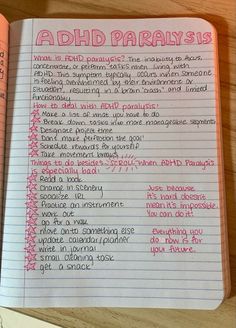 ADHD PARALYSIS
What is ADHD paralysis? The inability to focus,
concentrate, or perform tasks when living with
ADHD. This symptom typically occurs when someone
is feeling overwhelmed by their environment or
situation, resulting in a brain "crash" and limited
functionality
How to deal with ADHD paralysis:
Make a list of what you have to do
Break down tasks into more manageable segments
Designate project time
Don't make perfection the goal!
Schedule rewards for yourself
Take movement breaks
Things to do besides SCROLL when ADHD Paralysis
is especially bad!
Read a book
change in scenery
socialize IRL
Practice an instrument
work out
go for a walk
move onto something else
update calendar/planner
write in journal
small cleaning task
get a snack
Just because
it's hard doesn't
mean it's impossible.
You can do it!
Everything you
do now is for
your future.